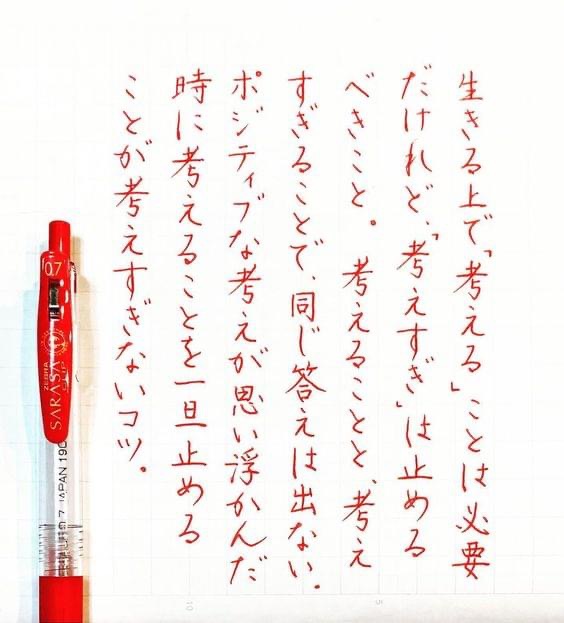 生きる上で「考える」ことは必要
だけれど、「考えすぎ」は止める
べきこと。 考えることと、考え
すぎることで、同じ答えは出ない。
ポジティブな考えが思い浮かんだ
時に考えることを一旦止める
ことが考えすぎないコツ。
0.7
ZEBRA
SARASA
CLIP
0.7 JAPAN 190
5
10